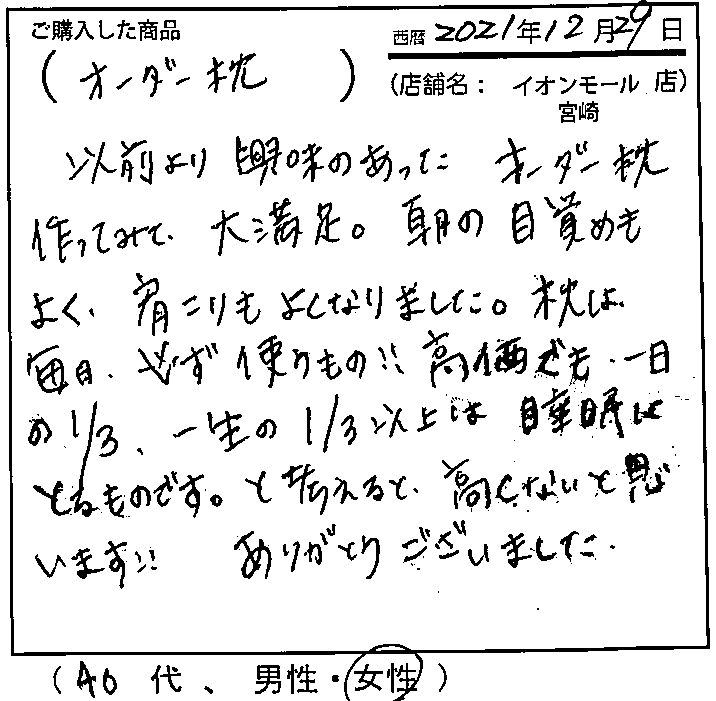 ご購入した商品
西暦 2021年12月29日
(オーダー枕)
(店舗名: イオンモール宮崎 店)
以前より興味のあった オーダー枕
作ってみて、大満足。朝の目覚めも
よく、肩こりもよくなりました。枕は、
毎日、必ず使うもの!! 高価でも、一日
の1/3、一生の1/3以上は 睡眠は
とるものです。と考えると、高くないと思
います!! ありがとうございました。
(40 代、男性・女性)